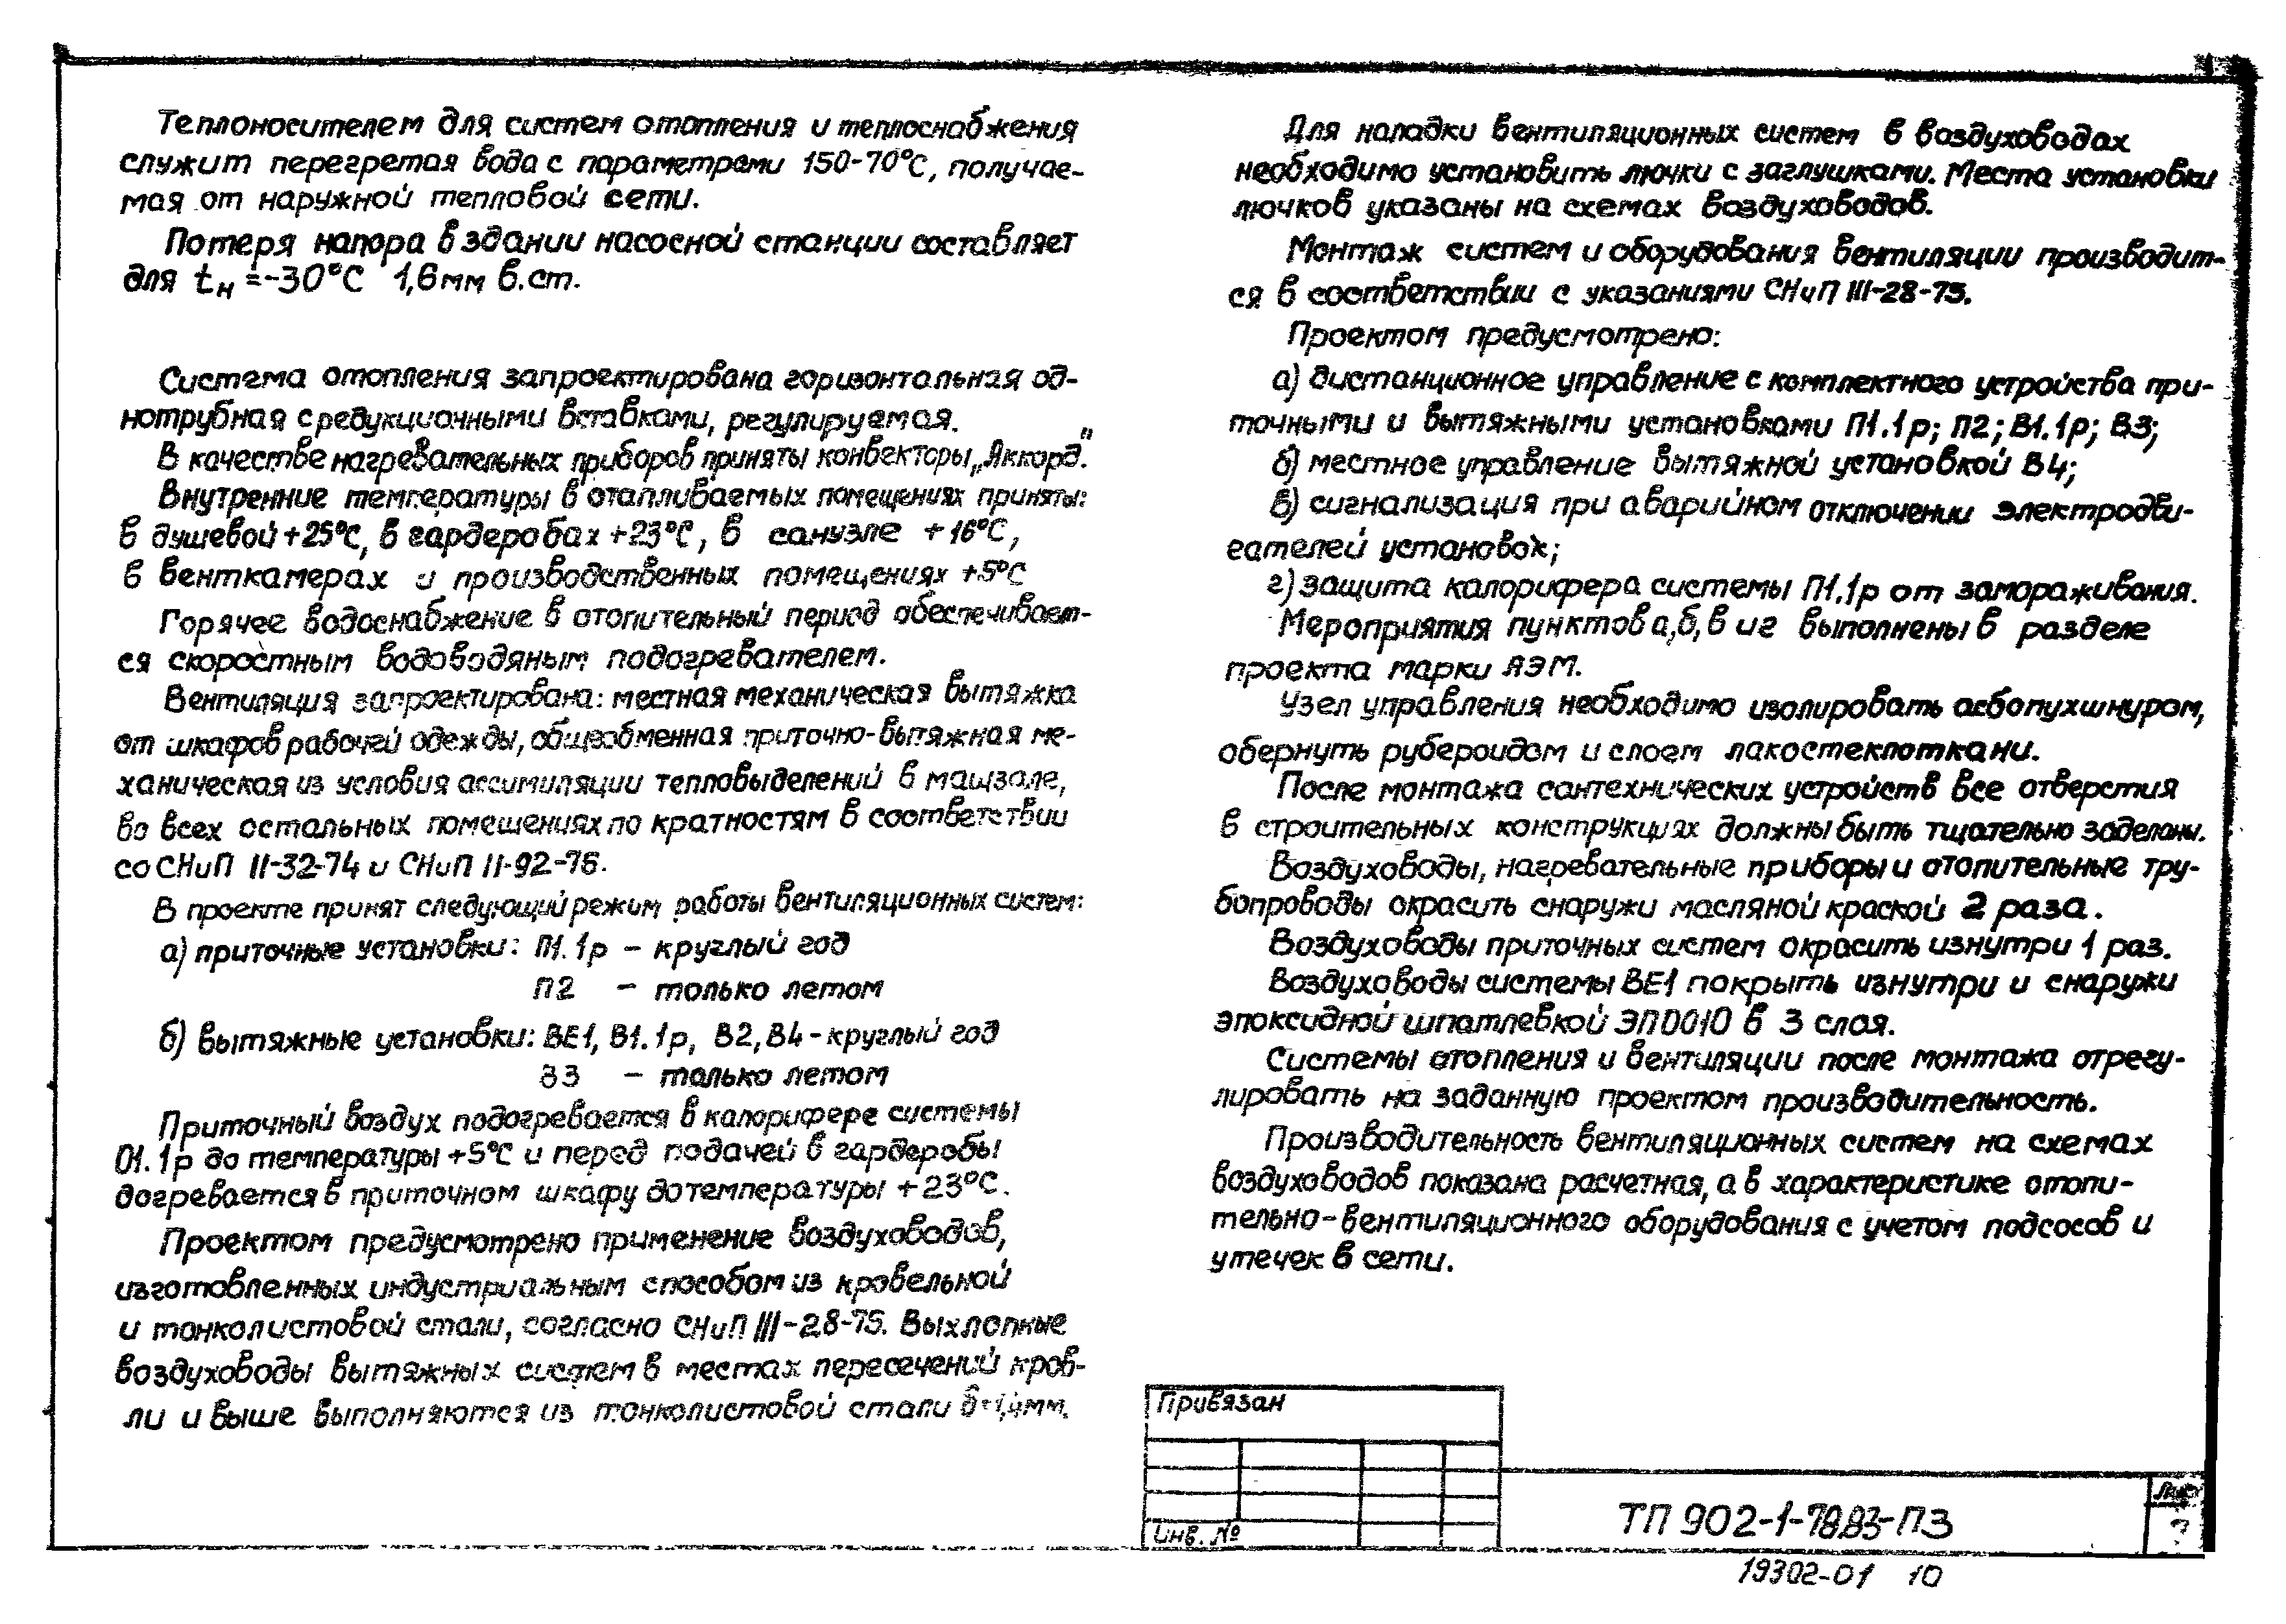 Теплоносителем для систем отопления и теплоснабжения
служит перегретая вода с параметрами 150-70°С, получае-
мая от наружной тепловой сети.
Потеря напора в здании насосной станции составляет
для tн =-30°С 1,6мм в.ст.
Система отопления запроектирована горизонтальная од-
нотрубная с редукционными вставками, регулируемая.
В качестве нагревательных приборов приняты конвекторы „Аккорд".
Внутренние температуры в отапливаемых помещениях приняты:
в душевой +25°С, в гардеробах +23°С, в санузле +16°С,
в венткамерах и производственных помещениях +5°С
Горячее водоснабжение в отопительный период обеспечивает-
ся скоростным водоводяным подогревателем.
Вентиляция запроектирована: местная механическая вытяжка
от шкафов рабочей одежды, общеобменная приточно-вытяжная ме-
ханическая из условия ассимиляции тепловыделений в машзале,
во всех остальных помещениях по кратностям в соответствии
со СНиП II-32-74 и СНиП II-92-76.
В проекте принят следующий режим работы вентиляционных систем:
а) приточные установки: П1.1р – круглый год
П2 – только летом
б) вытяжные установки: ВЕ1, В1.1р, В2, В4 - круглый год
В3 – только летом
Приточный воздух подогревается в калорифере системы
П1.1р до температуры +5°С и перед подачей в гардеробы
догревается в приточном шкафу до температуры +23°С.
Проектом предусмотрено применение воздуховодов,
изготовленных индустриальным способом из кровельной
и тонколистовой стали, согласно СНиП III-28-75. Выхлопные
воздуховоды вытяжных систем в местах пересечений кров-
ли и выше выполняются из тонколистовой стали δ=1,4мм.
Для наладки вентиляционных систем в воздуховодах
необходимо установить лючки с заглушками. Места установки
лючков указаны на схемах воздуховодов.
Монтаж систем и оборудования вентиляции производит-
ся в соответствии с указаниями СНиП III-28-75.
Проектом предусмотрено:
а) дистанционное управление с комплектного устройства при-
точными и вытяжными установками П1.1р; П2; В1.1р; В3;
б) местное управление вытяжной установкой В4;
в) сигнализация при аварийном отключении электродви-
гателей установок;
г) защита калорифера системы П1.1р от замораживания.
Мероприятия пунктов а, б, в и г выполнены в разделе
проекта марки АЭМ.
Узел управления необходимо изолировать асбопухшнуром,
обернуть рубероидом и слоем лакостеклоткани.
После монтажа сантехнических устройств все отверстия
в строительных конструкциях должны быть тщательно заделаны.
Воздуховоды, нагревательные приборы и отопительные тру-
бопроводы окрасить снаружи масляной краской 2 раза.
Воздуховоды приточных систем окрасить изнутри 1 раз.
Воздуховоды системы ВЕ1 покрыть изнутри и снаружи
эпоксидной шпатлевкой ЭП0010 в 3 слоя.
Системы отопления и вентиляции после монтажа отрегу-
лировать на заданную проектом производительность.
Производительность вентиляционных систем на схемах
воздуховодов показана расчетная, а в характеристике отопи-
тельно-вентиляционного оборудования с учетом подсосов и
утечек в сети.
Привязан
Инв. №
ТП 902-1-78.83-ПЗ
Лист
19302-01 10